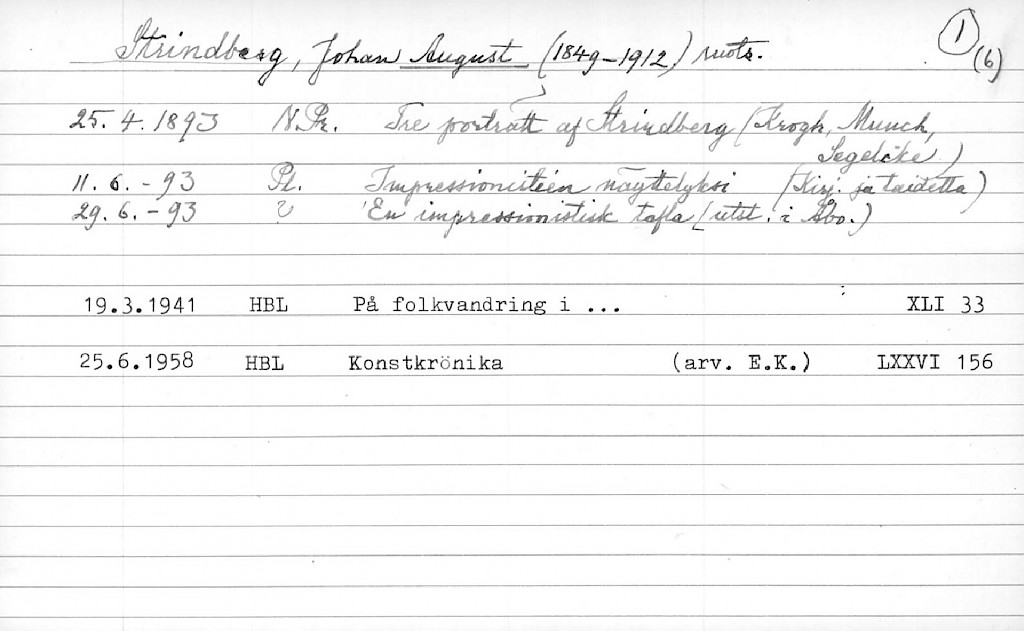 Strindberg, Johan August (1849-1912) ruots. 1 (6)
25. 4. 1893 N.Pr. Tre porträtt af Strindberg (Krogh, Munch,
Segelcke)
11. 6. -93 Impressionistien näyttelyksi (Kirj. ja taidetta)
29. 6. -93 ? En impressionistisk tafla (utst. i Åbo.)
19.3.1941 HBL På folkvandring i ... XLI 33
25.6.1958 HBL Konstkrönika (arv. E.K.) LXXVI 156